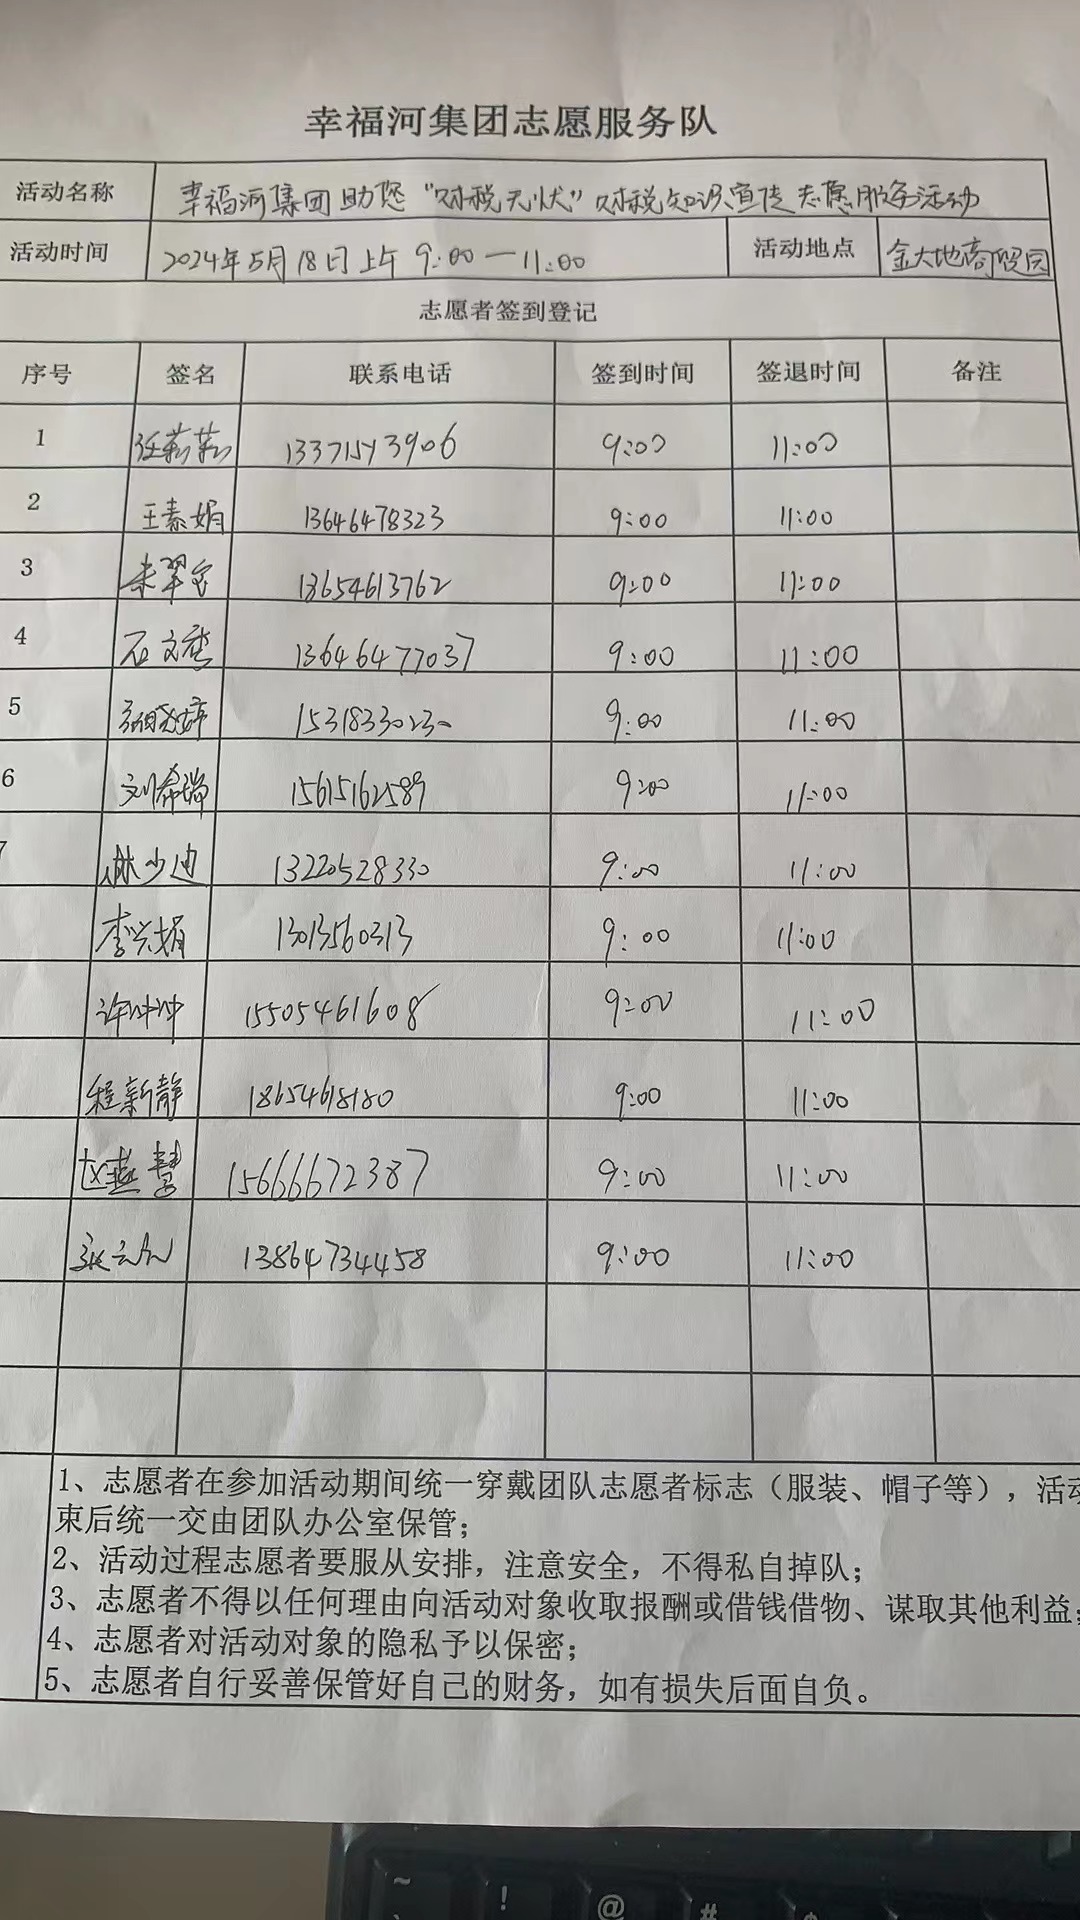 幸福河集团志愿服务队
活动名称 幸福河集团助您“财税无忧”财税知识宣传志愿服务活动
活动时间 2024年5月18日上午 9:00—11:00 活动地点 金大地商贸园
志愿者签到登记
序号 签名 联系电话 签到时间 签退时间 备注
1 任莉莉 9:00 11:00
2 王素娟 13646478323 9:00 11:00
3 13654613762 9:00 11:00
4 石文 13646477037 9:00 11:00
5 15318330230 9:00 11:00
6 刘希瑞 15615162589 9:00 11:00
7 麻少迪 13220528330 9:00 11:00
李兴娟 13013560313 9:00 11:00
许冲冲 15505461608 9:00 11:00
程新静 18654618180 9:00 11:00
赵燕慧 15666672387 9:00 11:00
张 13864734458 9:00 11:00
1、志愿者在参加活动期间统一穿戴团队志愿者标志（服装、帽子等），活动
束后统一交由团队办公室保管；
2、活动过程志愿者要服从安排，注意安全，不得私自掉队；
3、志愿者不得以任何理由向活动对象收取报酬或借钱借物、谋取其他利益；
4、志愿者对活动对象的隐私予以保密；
5、志愿者自行妥善保管好自己的财务，如有损失后面自负。
~ ! @ #